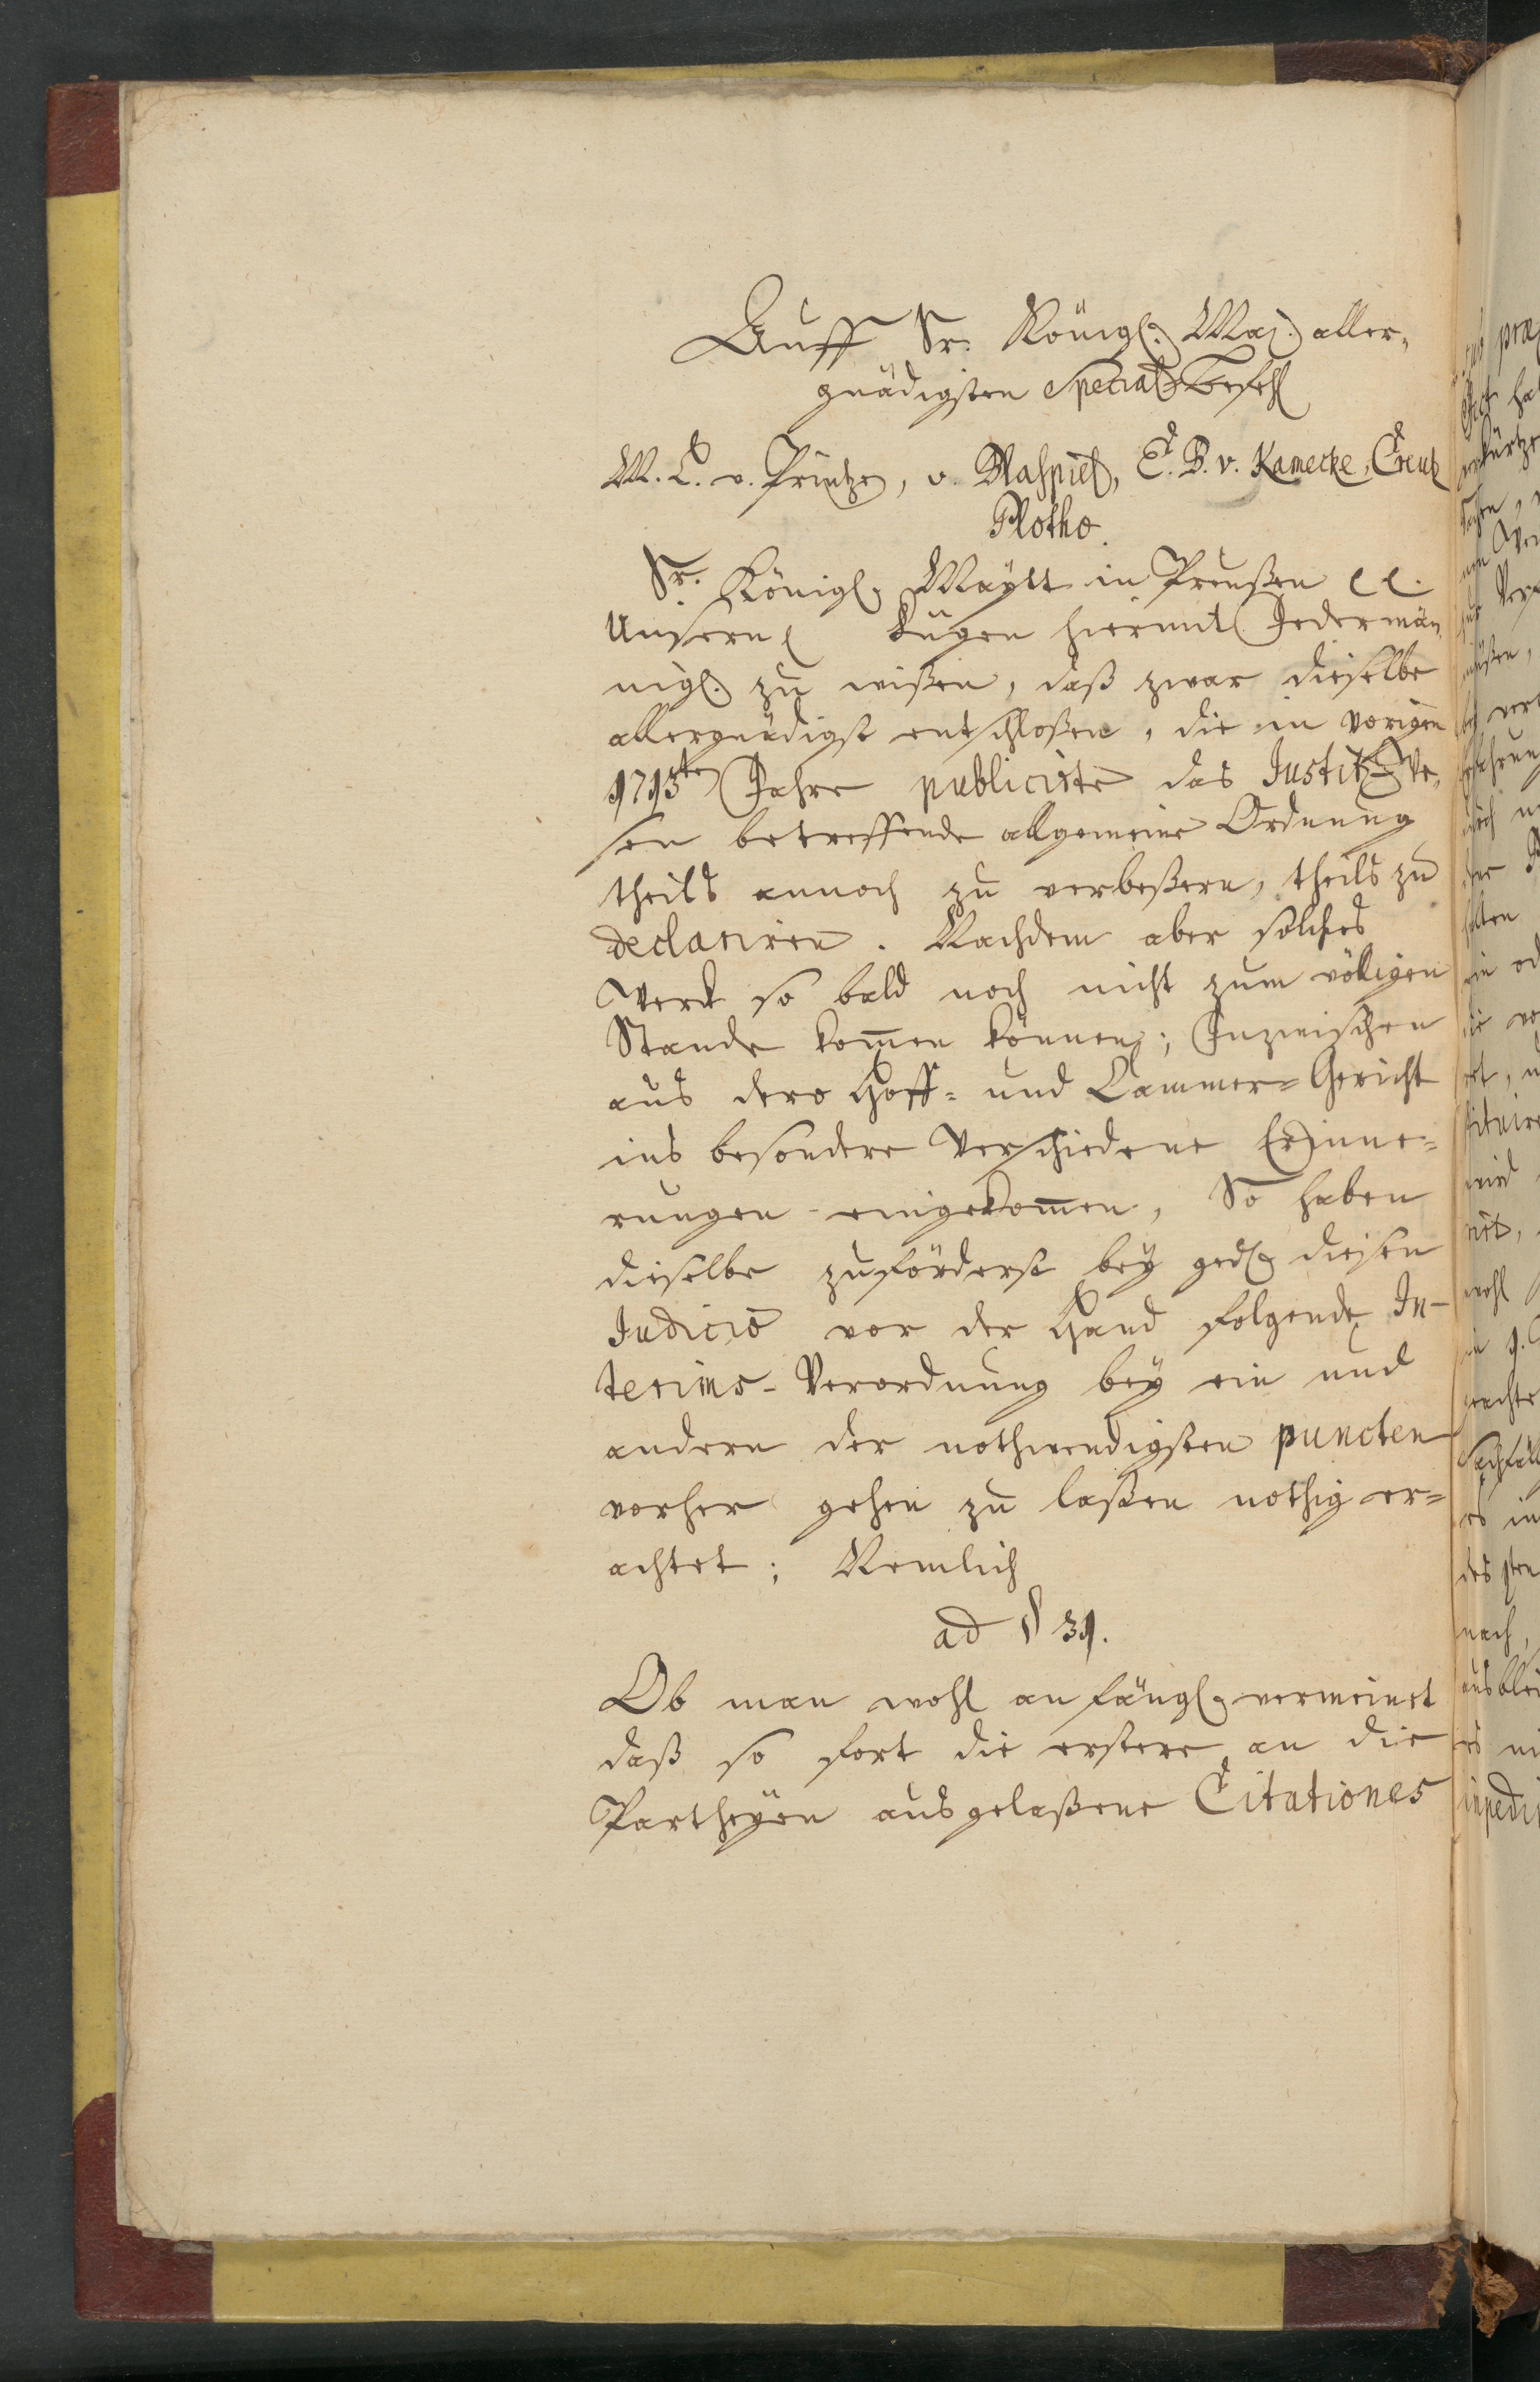 Auff Sr. Königl. Maj. aller-
gnädigsten Special-Befehl
M. L. v. Printzen, v. Blaspiel, E. B. v. Kamecke, Creutz
Plotho.
Sr. Königl. Maÿtt in Preußen
Unsern fügen hiermit Jedermän-
nigl. zu wißen, daß zwar dieselbe
allergnädigst entschloßen, die im vorigen
1713ten Jahre publicirte das Justitz-We-
sen betreffende allgemeine Ordnung
theils annoch zu verbeßern, theils zu
declariren. Nachdem aber solches
Werck so bald noch nicht zum völligen
Stande kom̅en können; Inzwischen
aus dero Hoff- und Cammer-Gericht
ins besondere verschiedene Erinne-
rungen eingekom̅en, So haben
dieselbe zuförderst beÿ ged. diesen
Judicio vor der Hand folgende In-
terims-Verordnung beÿ ein und
andern der nothwendigsten puncten
vorher gehen zu laßen nöthig er-
achtet; Nemlich
ad § 31.
Ob man wohl anfängl. vermeinet
daß so fort die erstere an die
Partheÿen ausgelaßene Citationes